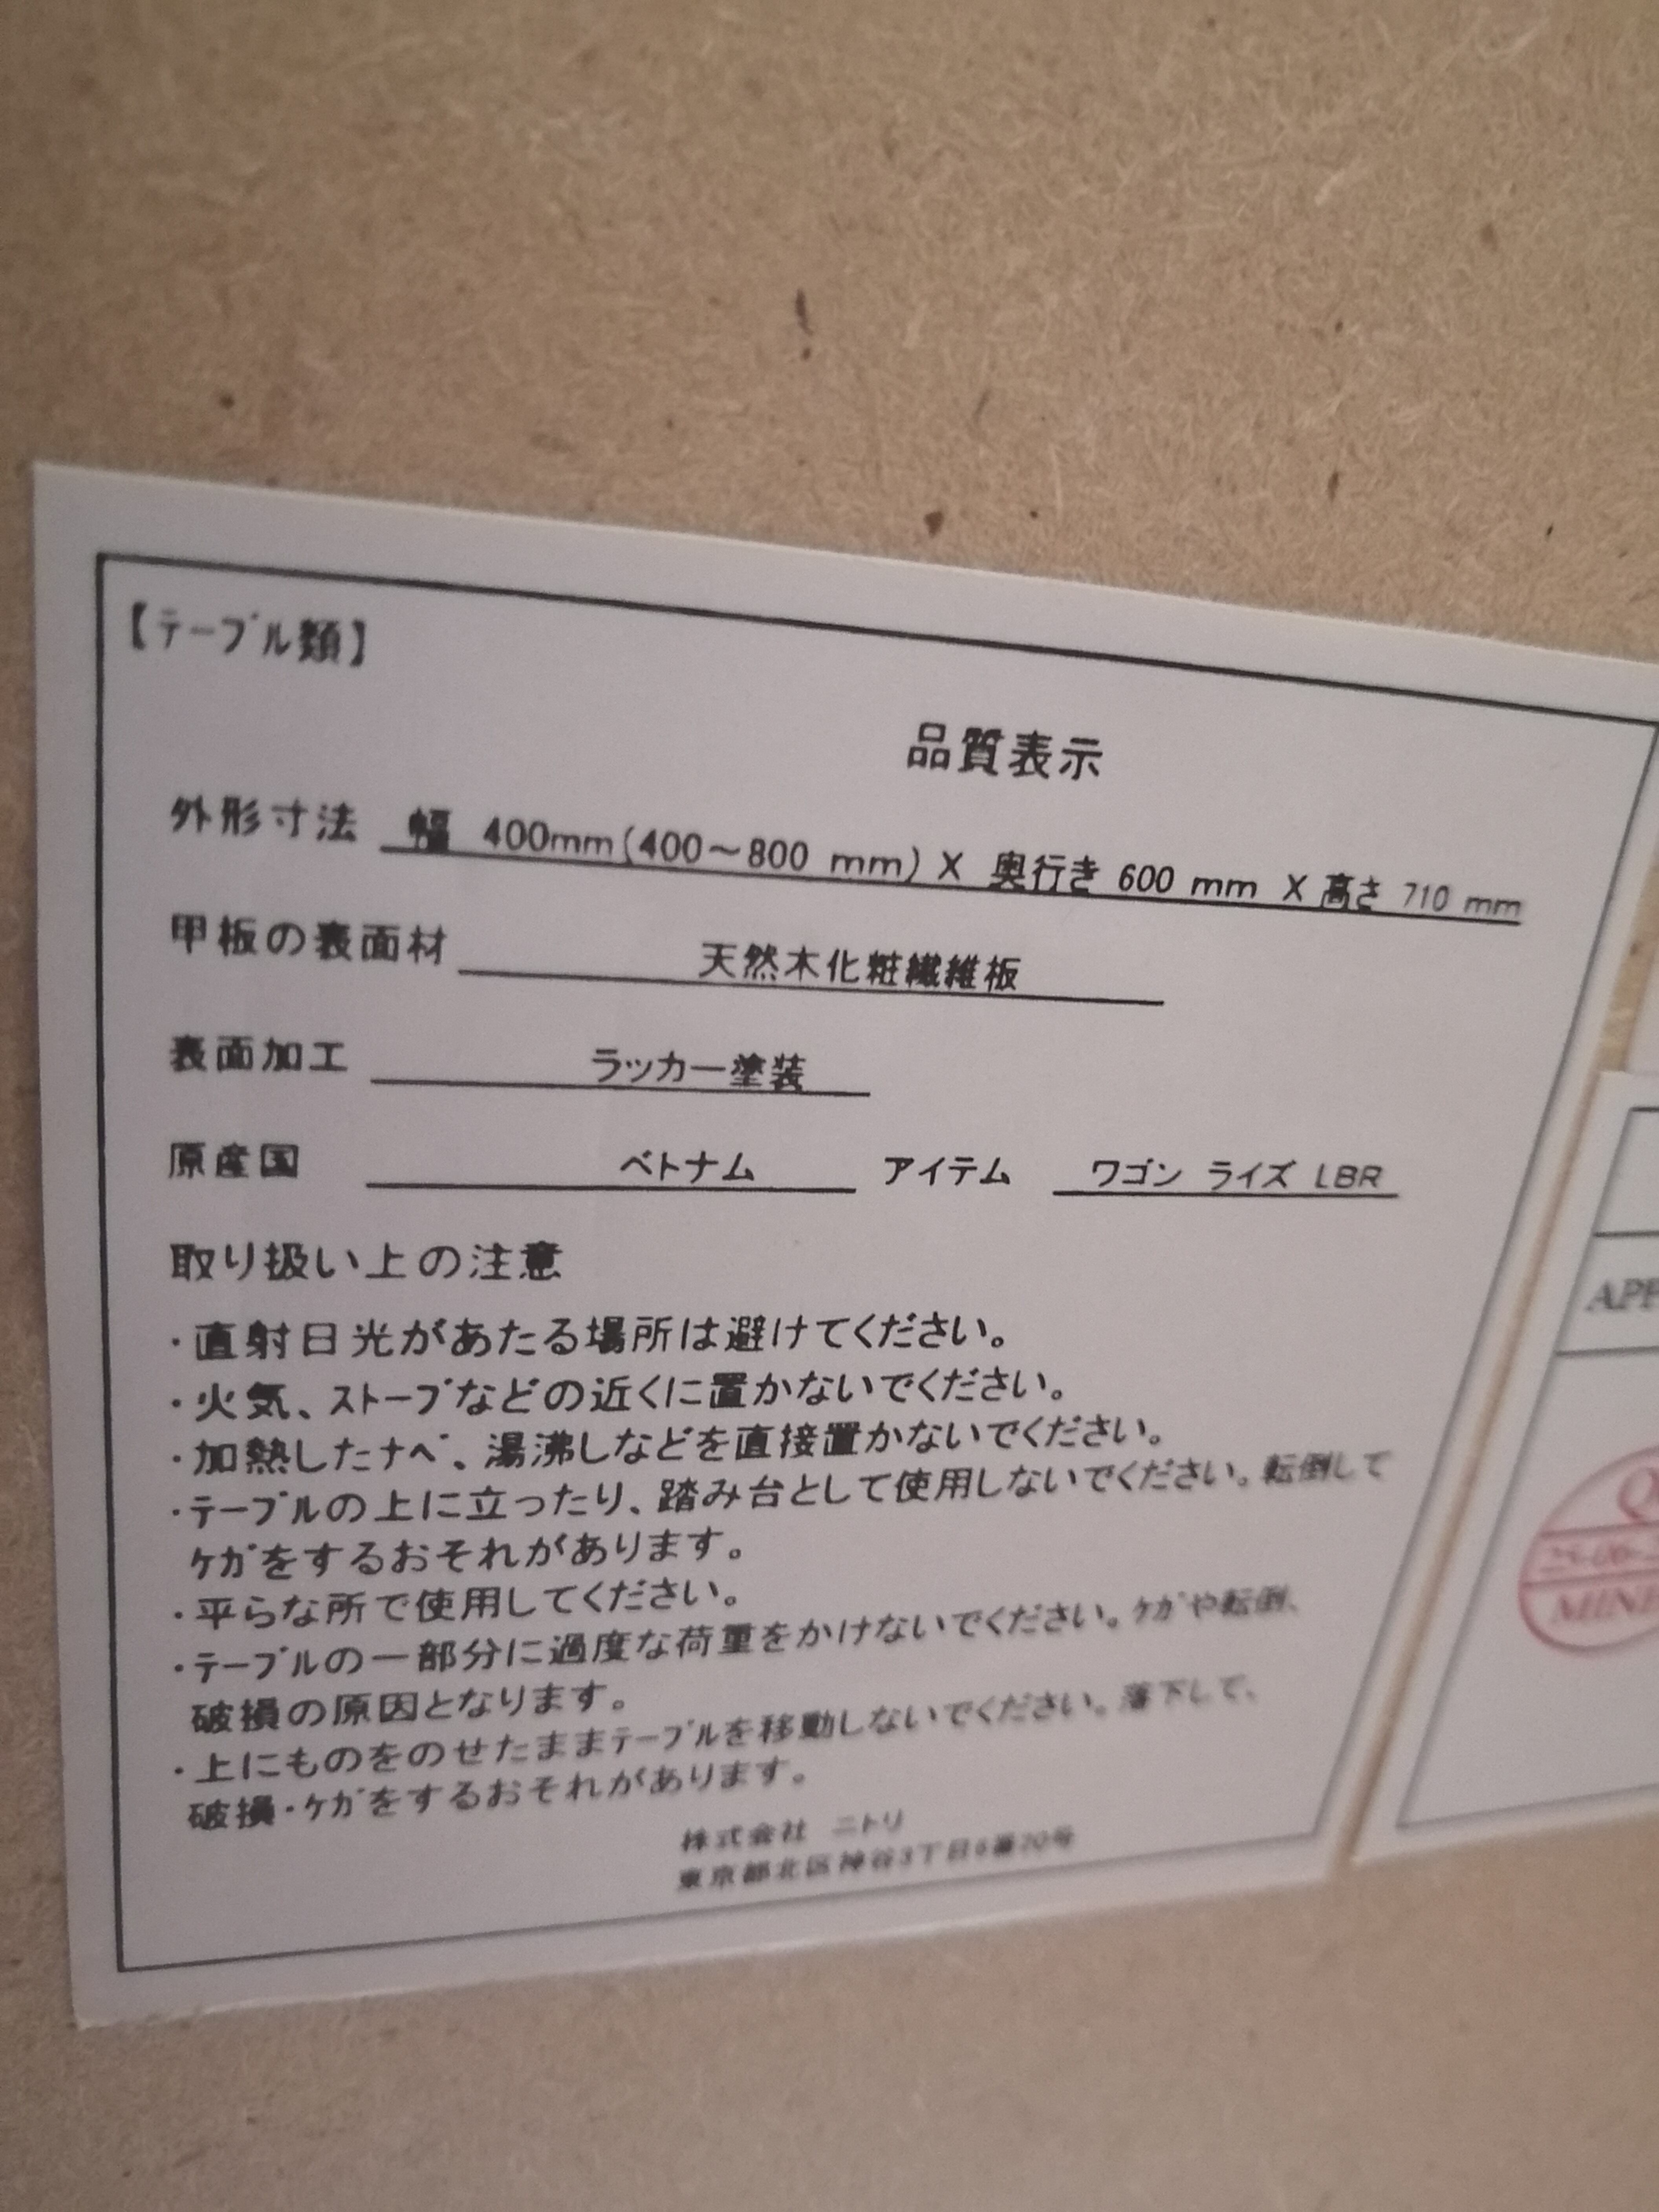 【テーブル類】
品質表示
外形寸法 幅 400mm(400～800 mm) X 奥行き 600 mm X 高さ 710 mm
甲板の表面材 天然木化粧繊維板
表面加工 ラッカー塗装
原産国 ベトナム アイテム ワゴン ライズ LBR
取り扱い上の注意
・直射日光があたる場所は避けてください。
・火気、ストーブなどの近くに置かないでください。
・加熱したナベ、湯沸しなどを直接置かないでください。
・テーブルの上に立ったり、踏み台として使用しないでください。転倒して
ケガをするおそれがあります。
・平らな所で使用してください。
・テーブルの一部分に過度な荷重をかけないでください。ケガや転倒、
破損の原因となります。
・上にものをのせたままテーブルを移動しないでください。落下して、
破損・ケガをするおそれがあります。
株式会社 ニトリ
東京都北区神谷3丁目6番20号